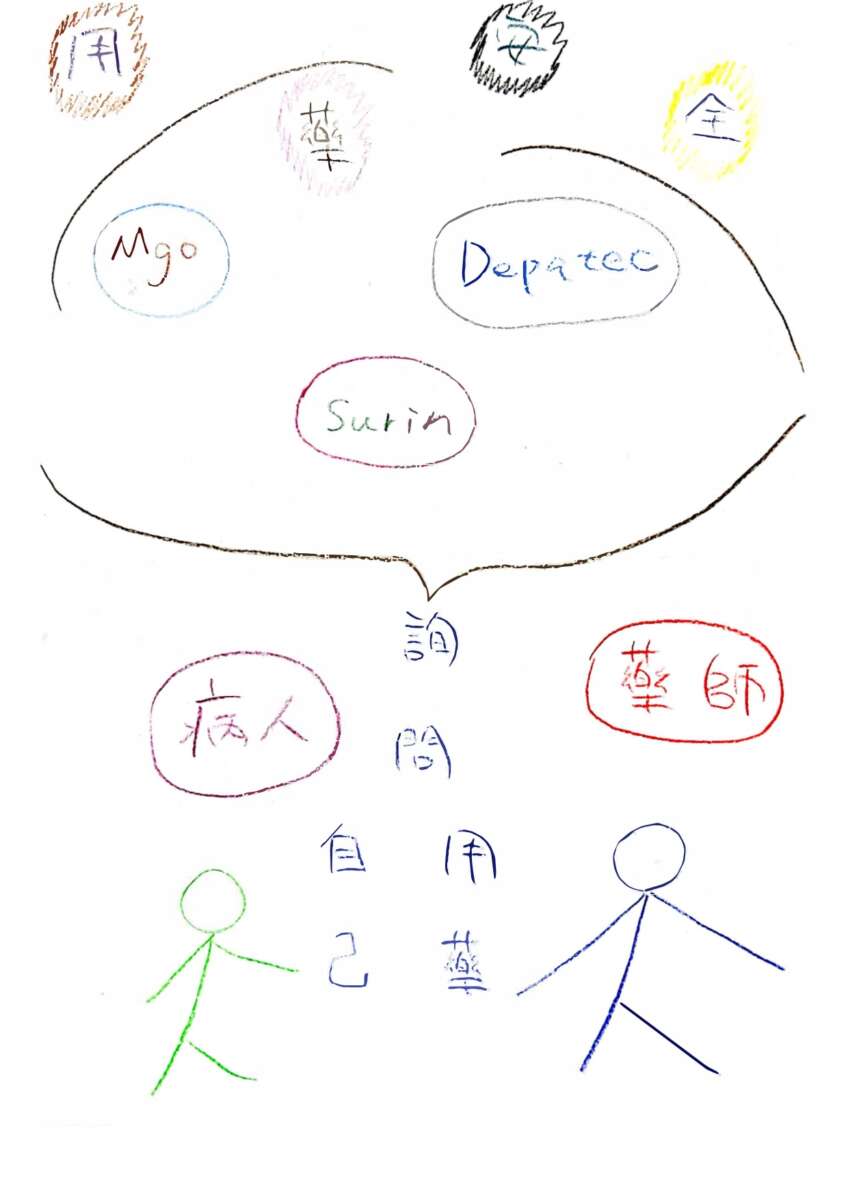 用藥安全
Mgo
Depatec
Surin
詢問
病人
藥師
自己
用藥